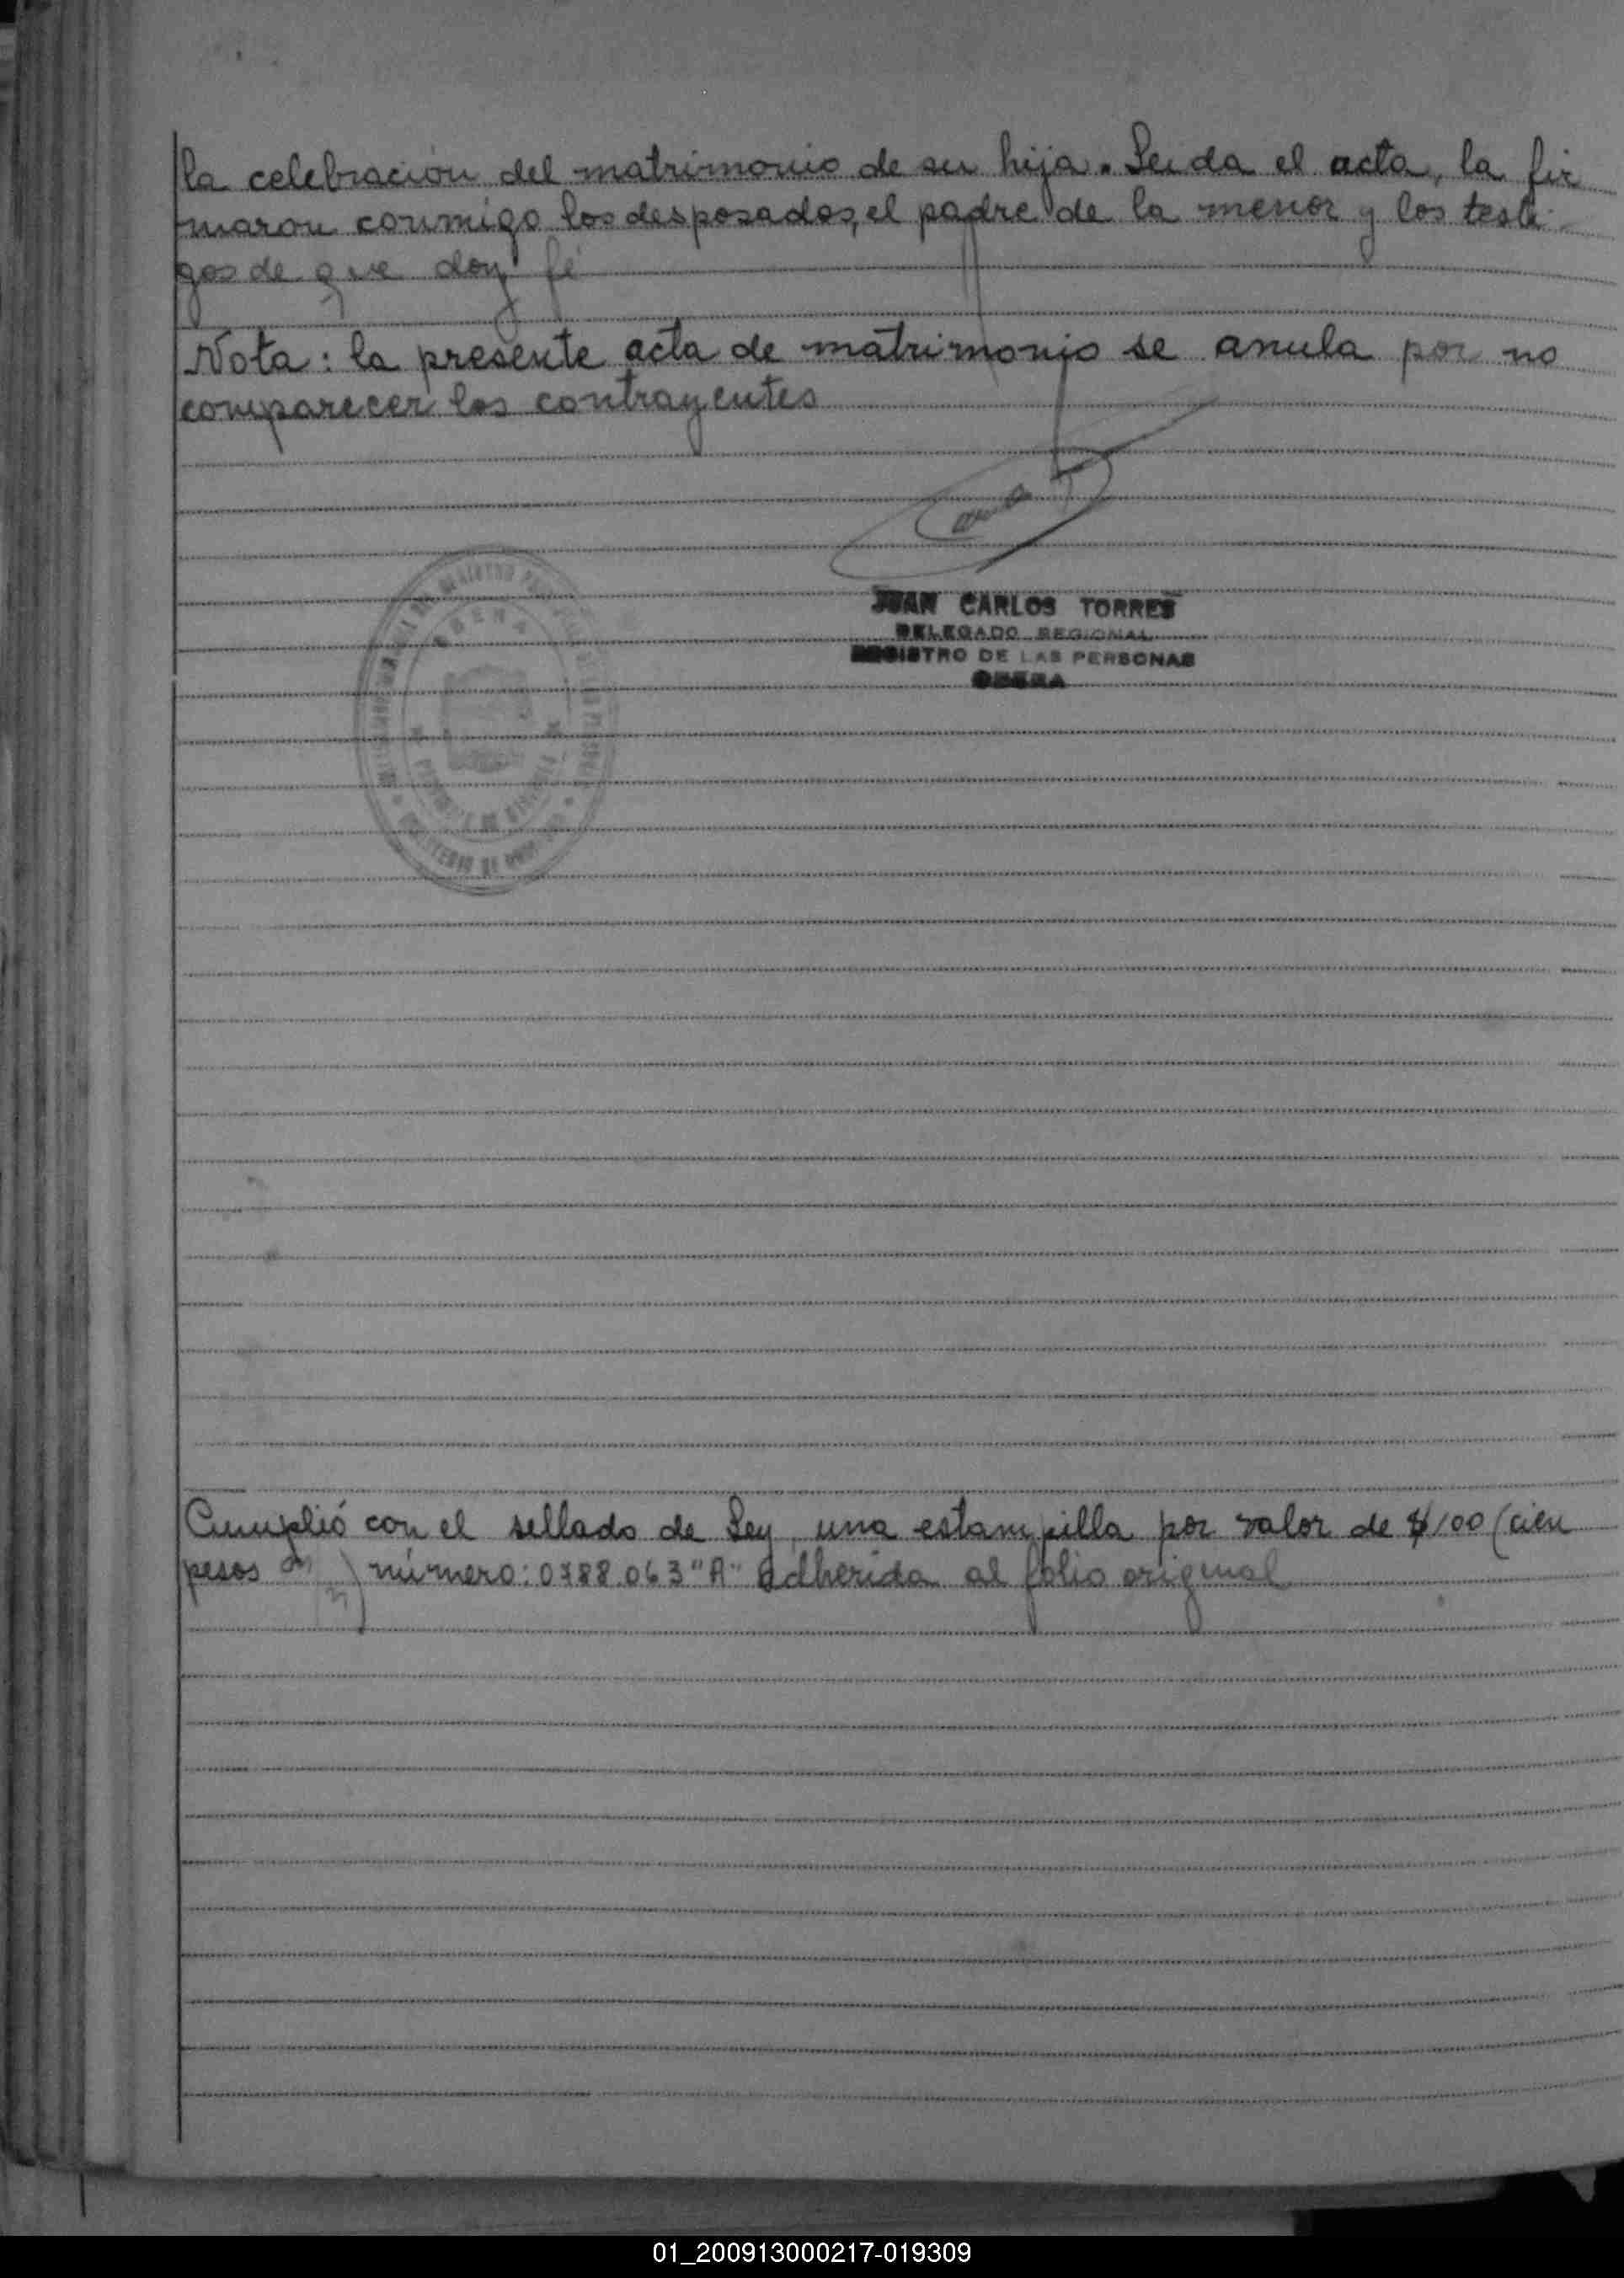 la celebración del matrimonio de su hija. Leida el acta, la fir
maron conmigo los desposados, el padre de la menor y los testi-
gos de que doy fé
Nota: la presente acta de matrimonio se anula por no
comparecer los contrayentes
JUAN CARLOS TORRES
DELEGADO REGIONAL
REGISTRO DE LAS PERSONAS
OBERA
Cumplió con el sellado de Ley, una estampilla por valor de $100 (cien
pesos m/n) número: 0788.063 "A" adherida al folio original
01_200913000217-019309